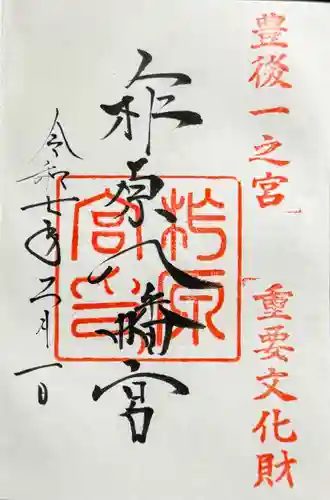 豊後一之宮
重要文化財
柞原八幡宮
令和七年二月一日
柞原
宮印